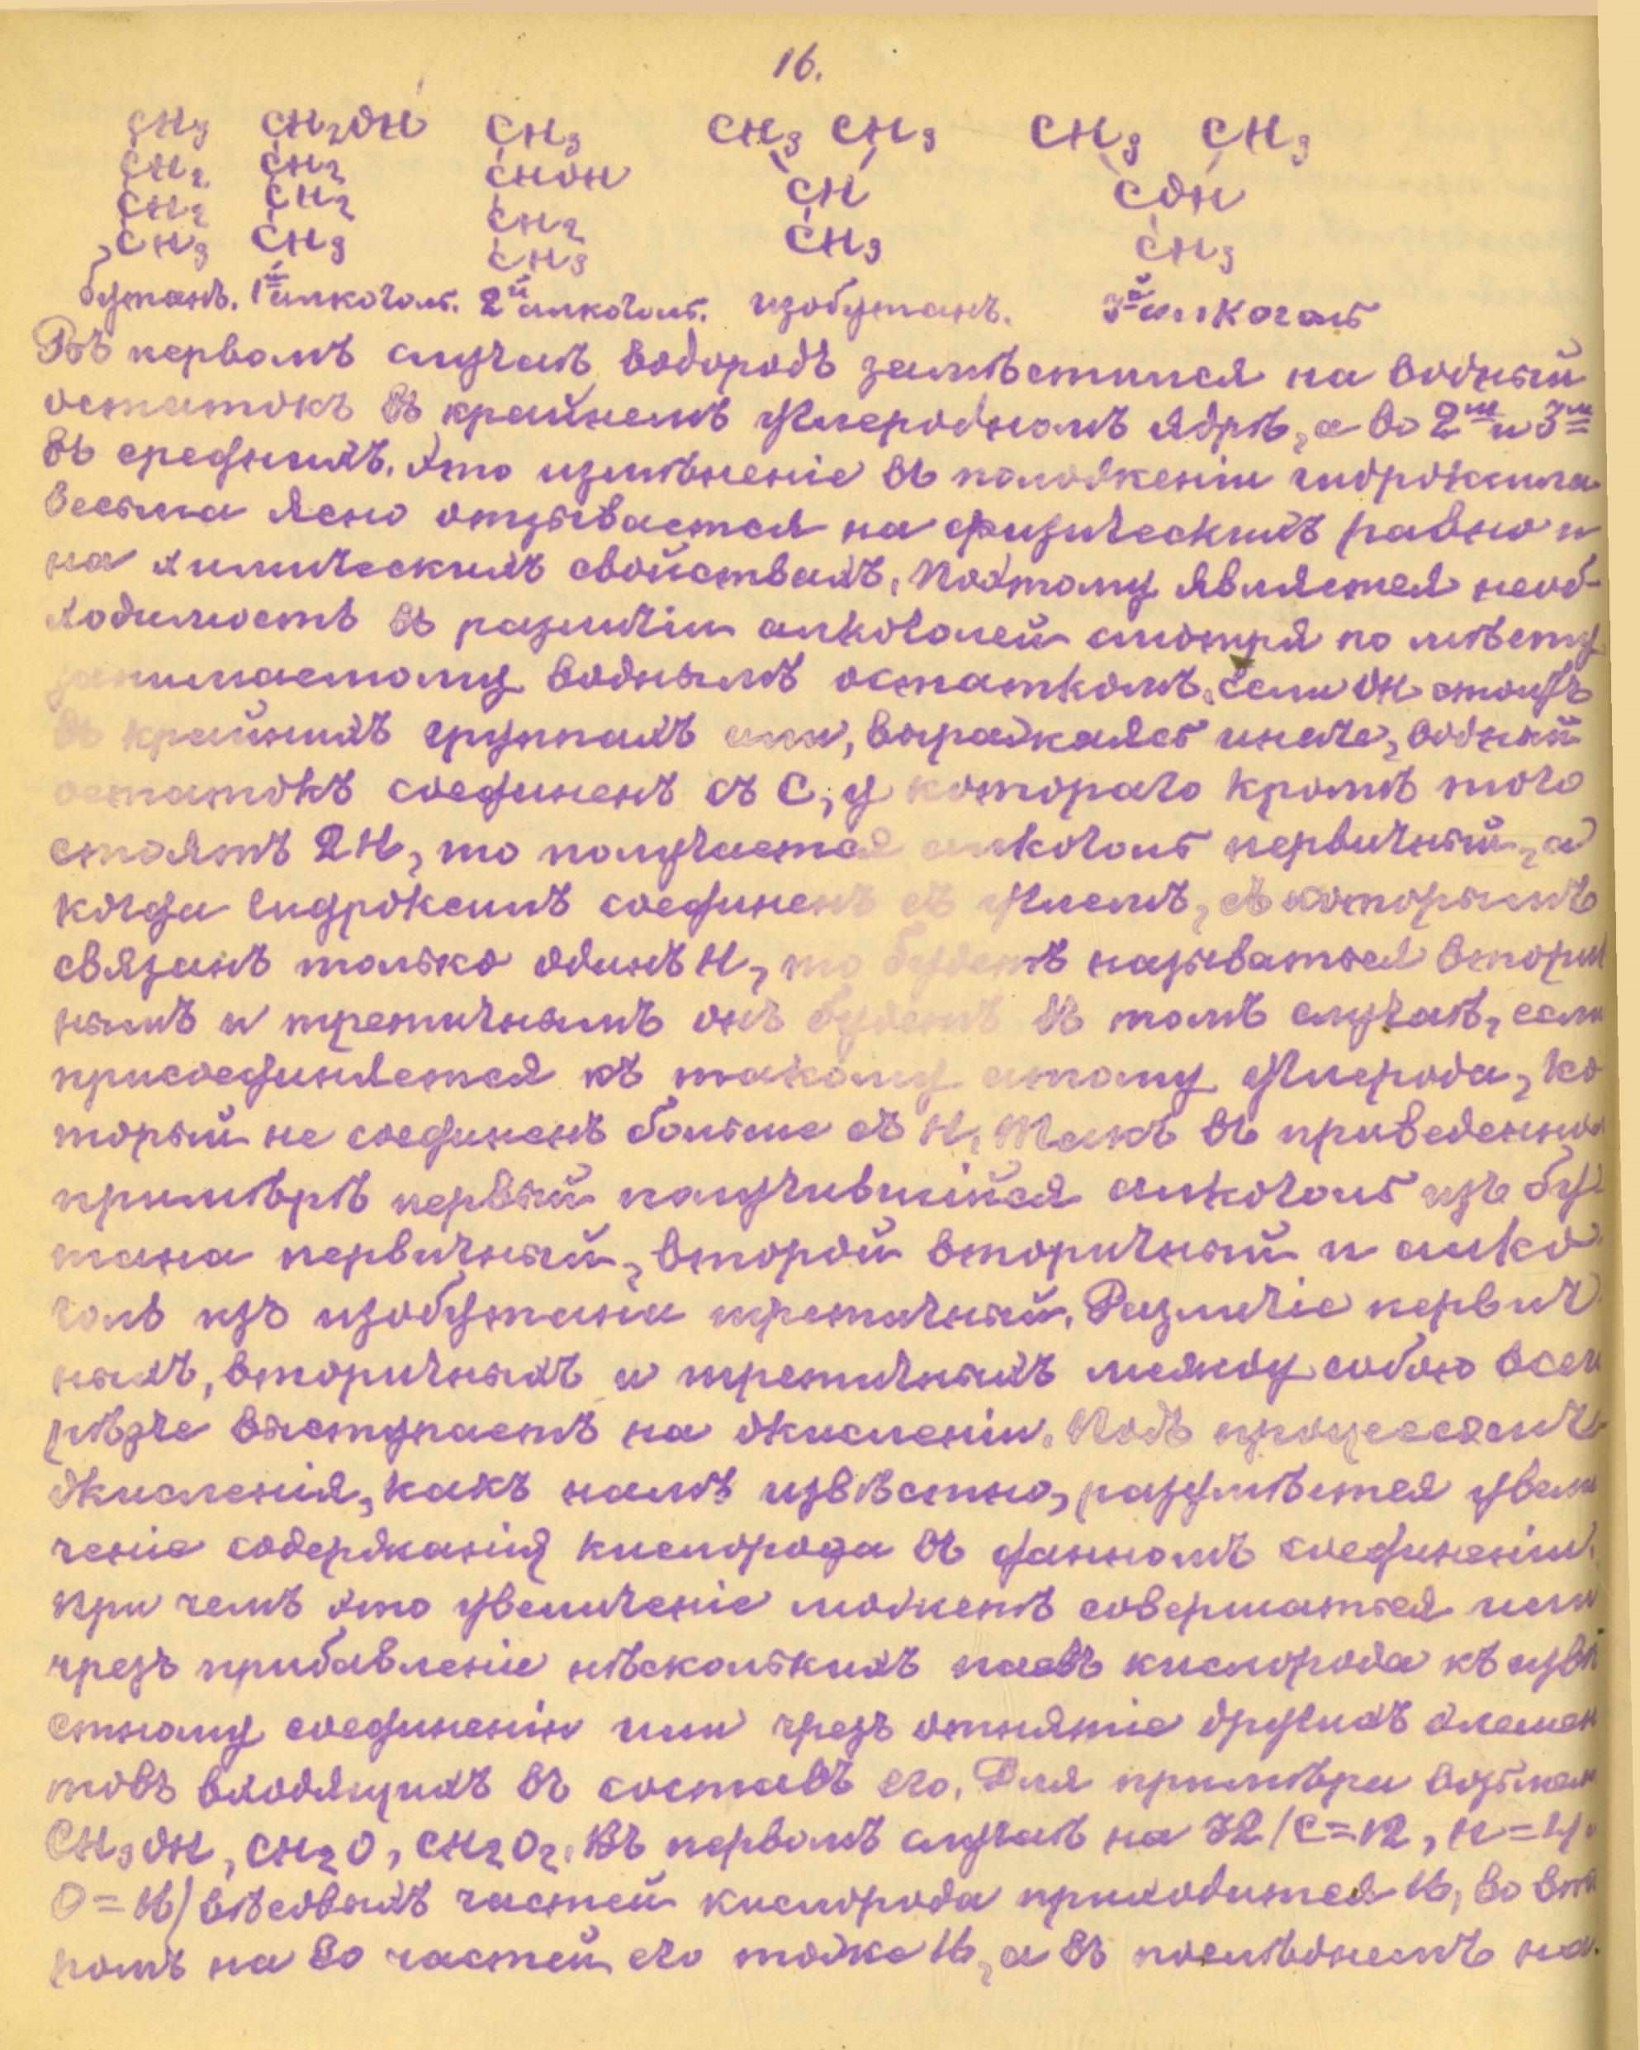 16.
CH3 CH2OH CH3 CH3 CH3 CH3 CH3
CH2 CH2 CHOH CH COH
CH2 CH2 CH2 CH3 CH3
CH3 CH3 CH3
бутанъ. 1й алкоголь. 2й алкоголь. изобутанъ. 3й алкоголь
Въ первомъ случаѣ водородъ замѣстился на водный
остатокъ въ крайнемъ углеродномъ ядрѣ, а во 2мъ и 3мъ
въ среднихъ. Это измѣненіе въ положеніи гидроксила
весьма ясно отзывается на физическихъ равно и
на химическихъ свойствахъ. Поэтому является необ-
ходимость въ различіи алкоголей смотря по мѣсту
занимаемому воднымъ остаткомъ. Если OH стоитъ
въ крайнихъ группахъ или, выражаясь иначе, водный
остатокъ соединенъ съ C, у котораго кромѣ того
стоятъ 2H, то получается алкоголь первичный, а
когда гидроксилъ соединенъ съ углемъ, съ которымъ
связанъ только одинъ H, то будетъ называться вторич
нымъ и третичнымъ онъ будетъ въ томъ случаѣ, если
присоединяется къ такому атому углерода, ко
торый не соединенъ больше съ H. Такъ въ приведенно
примѣрѣ первый получившійся алкоголь изъ бу
тана первичный, второй вторичный и алко
голь изъ изобутана третичный. Различіе первич
ныхъ, вторичныхъ и третичныхъ между собою всего
рѣзче выступаетъ на окисленіи. Подъ процессомъ
окисленія, какъ намъ извѣстно, разумѣется увели
ченіе содержанія кислорода въ данномъ соединеніи.
При чемъ это увеличеніе можетъ совершаться или
чрезъ прибавленіе нѣсколькихъ паевъ кислорода къ извѣ
стному соединенію или чрезъ отнятіе другихъ элемен
товъ входящихъ въ составъ его. Для примѣра возьмемъ
CH3OH, CH2O, CH2O2. Въ первомъ случаѣ на 32 /C=12, H=4,
O=16/ вѣсовыхъ частей кислорода приходится 16, во вто
ромъ на 30 частей его тоже 16, а въ послѣднемъ на